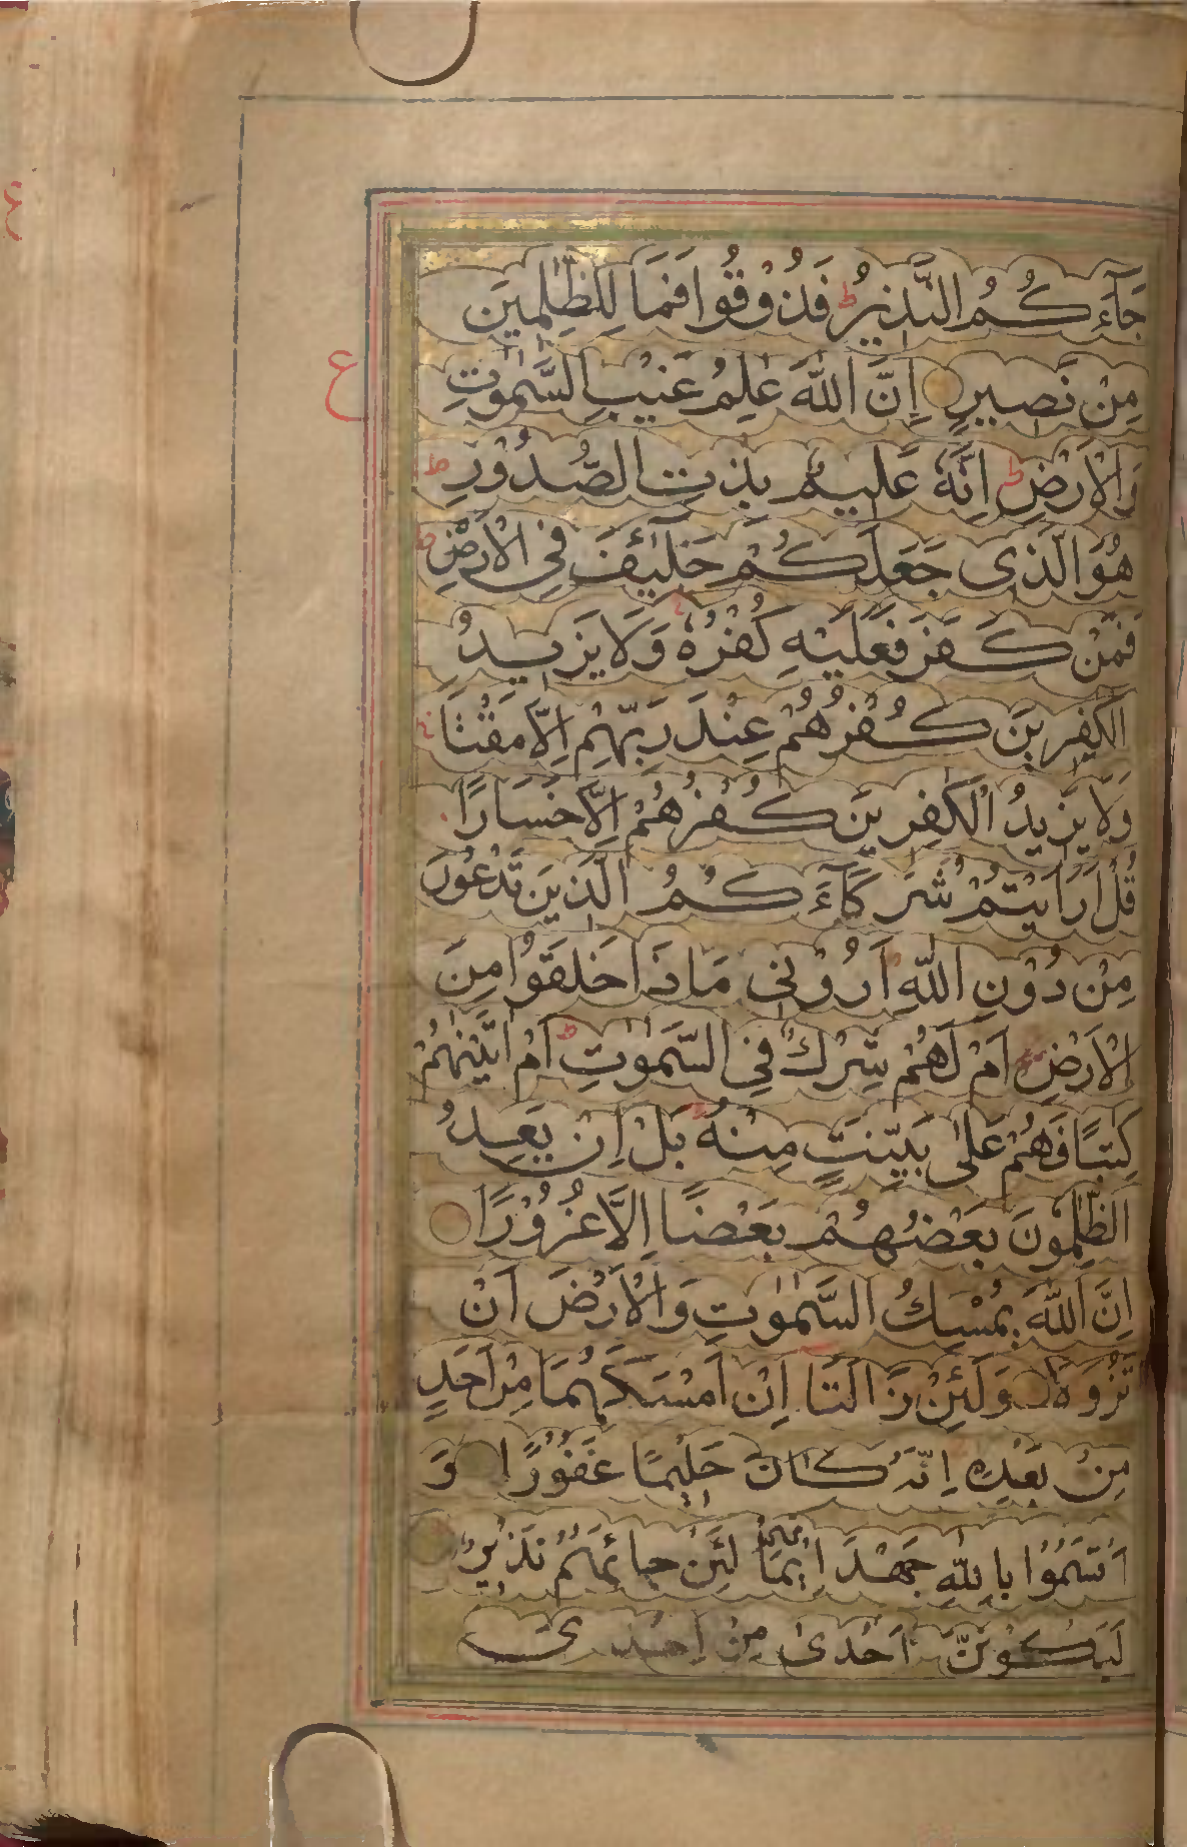 جَآءَكُمُ النَّذِيرُ ط فَذُوْقُوا فَمَا لِلظّٰلِمِيَن
مِنْ نَصِيرٍ اِنَّ اللّٰهَ عٰلِمُ غَيْبِ السَّمٰوٰتِ
وَالْاَرْضِ ط اِنَّهٗ عَلِيمٌ بِذتِ الصُّدُوْرِ ط
هُوَ الَّذى جَعَلَكُمْ خَلٰٓئِفَ فِى الْاَرْضِ ط
فَمَنْ كَفَرَ فَعَلَيْهِ كُفْرُهٗ وَلَا يَزِيدُ
الْكٰفِرِينَ كُفْرُهُمْ عِنْدَ رَبِّهِمْ اِلَّا مَقْتًا
وَلَا يَزِيدُ الْكٰفِرِينَ كُفْرُهُمْ اِلَّا خَسَارًا
قُلْ اَرَاَيْتُمْ شُرَكَآءَكُمُ الَّذِينَ تَدْعُوْنَ
مِنْ دُوْنِ اللّٰهِ اَرُوْنِى مَاذَا خَلَقُوْا مِنَ
الْاَرْضِ اَمْ لَهُمْ شِرْكٌ فِى السَّمٰوٰتِ ط اَمْ اٰتَيْنٰهُمْ
كِتٰبًا فَهُمْ عَلٰى بَيِّنَتٍ مِنْهُ بَلْ اِنْ يَعِدُ
الظّٰلِمُوْنَ بَعْضُهُمْ بَعْضًا اِلَّا غُرُوْرًا
اِنَّ اللّٰهَ يُمْسِكُ السَّمٰوٰتِ وَالْاَرْضَ اَنْ
تَزُوْلَا وَلَئِنْ زَالَتَا اِنْ اَمْسَكَهُمَا مِنْ اَحَدٍ
مِنْ بَعْدِهِ اِنَّهُ كَانَ حَلِيمًا غَفُوْرًا وَ
اَقْسَمُوْا بِاللّٰهِ جَهْدَ اَيْمَانِهِمْ لَئِنْ جائَهُمْ نَذِيرٌ
لَيَكُوْنُنَّ اَهْدٰى مِنْ اِحْدَى
ع
ع